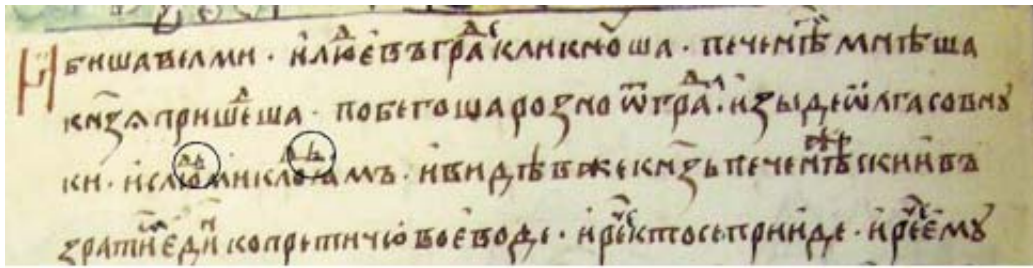 И биша велми · и люⷣе въ граⷣ кликноша · печенѣ мнѣша
кн҃зѧ пришеⷣша · побегоша розно ѿ граⷣ · изыде ѡлга со внꙋ
ки · и с люⷣми к лоⷣямъ · и видѣв же кн҃зь печенѣскии въ
зратиⷭ едиⷩ ко претичю воеводе · и реⷱ кто се прииде · и реⷱ емꙋ